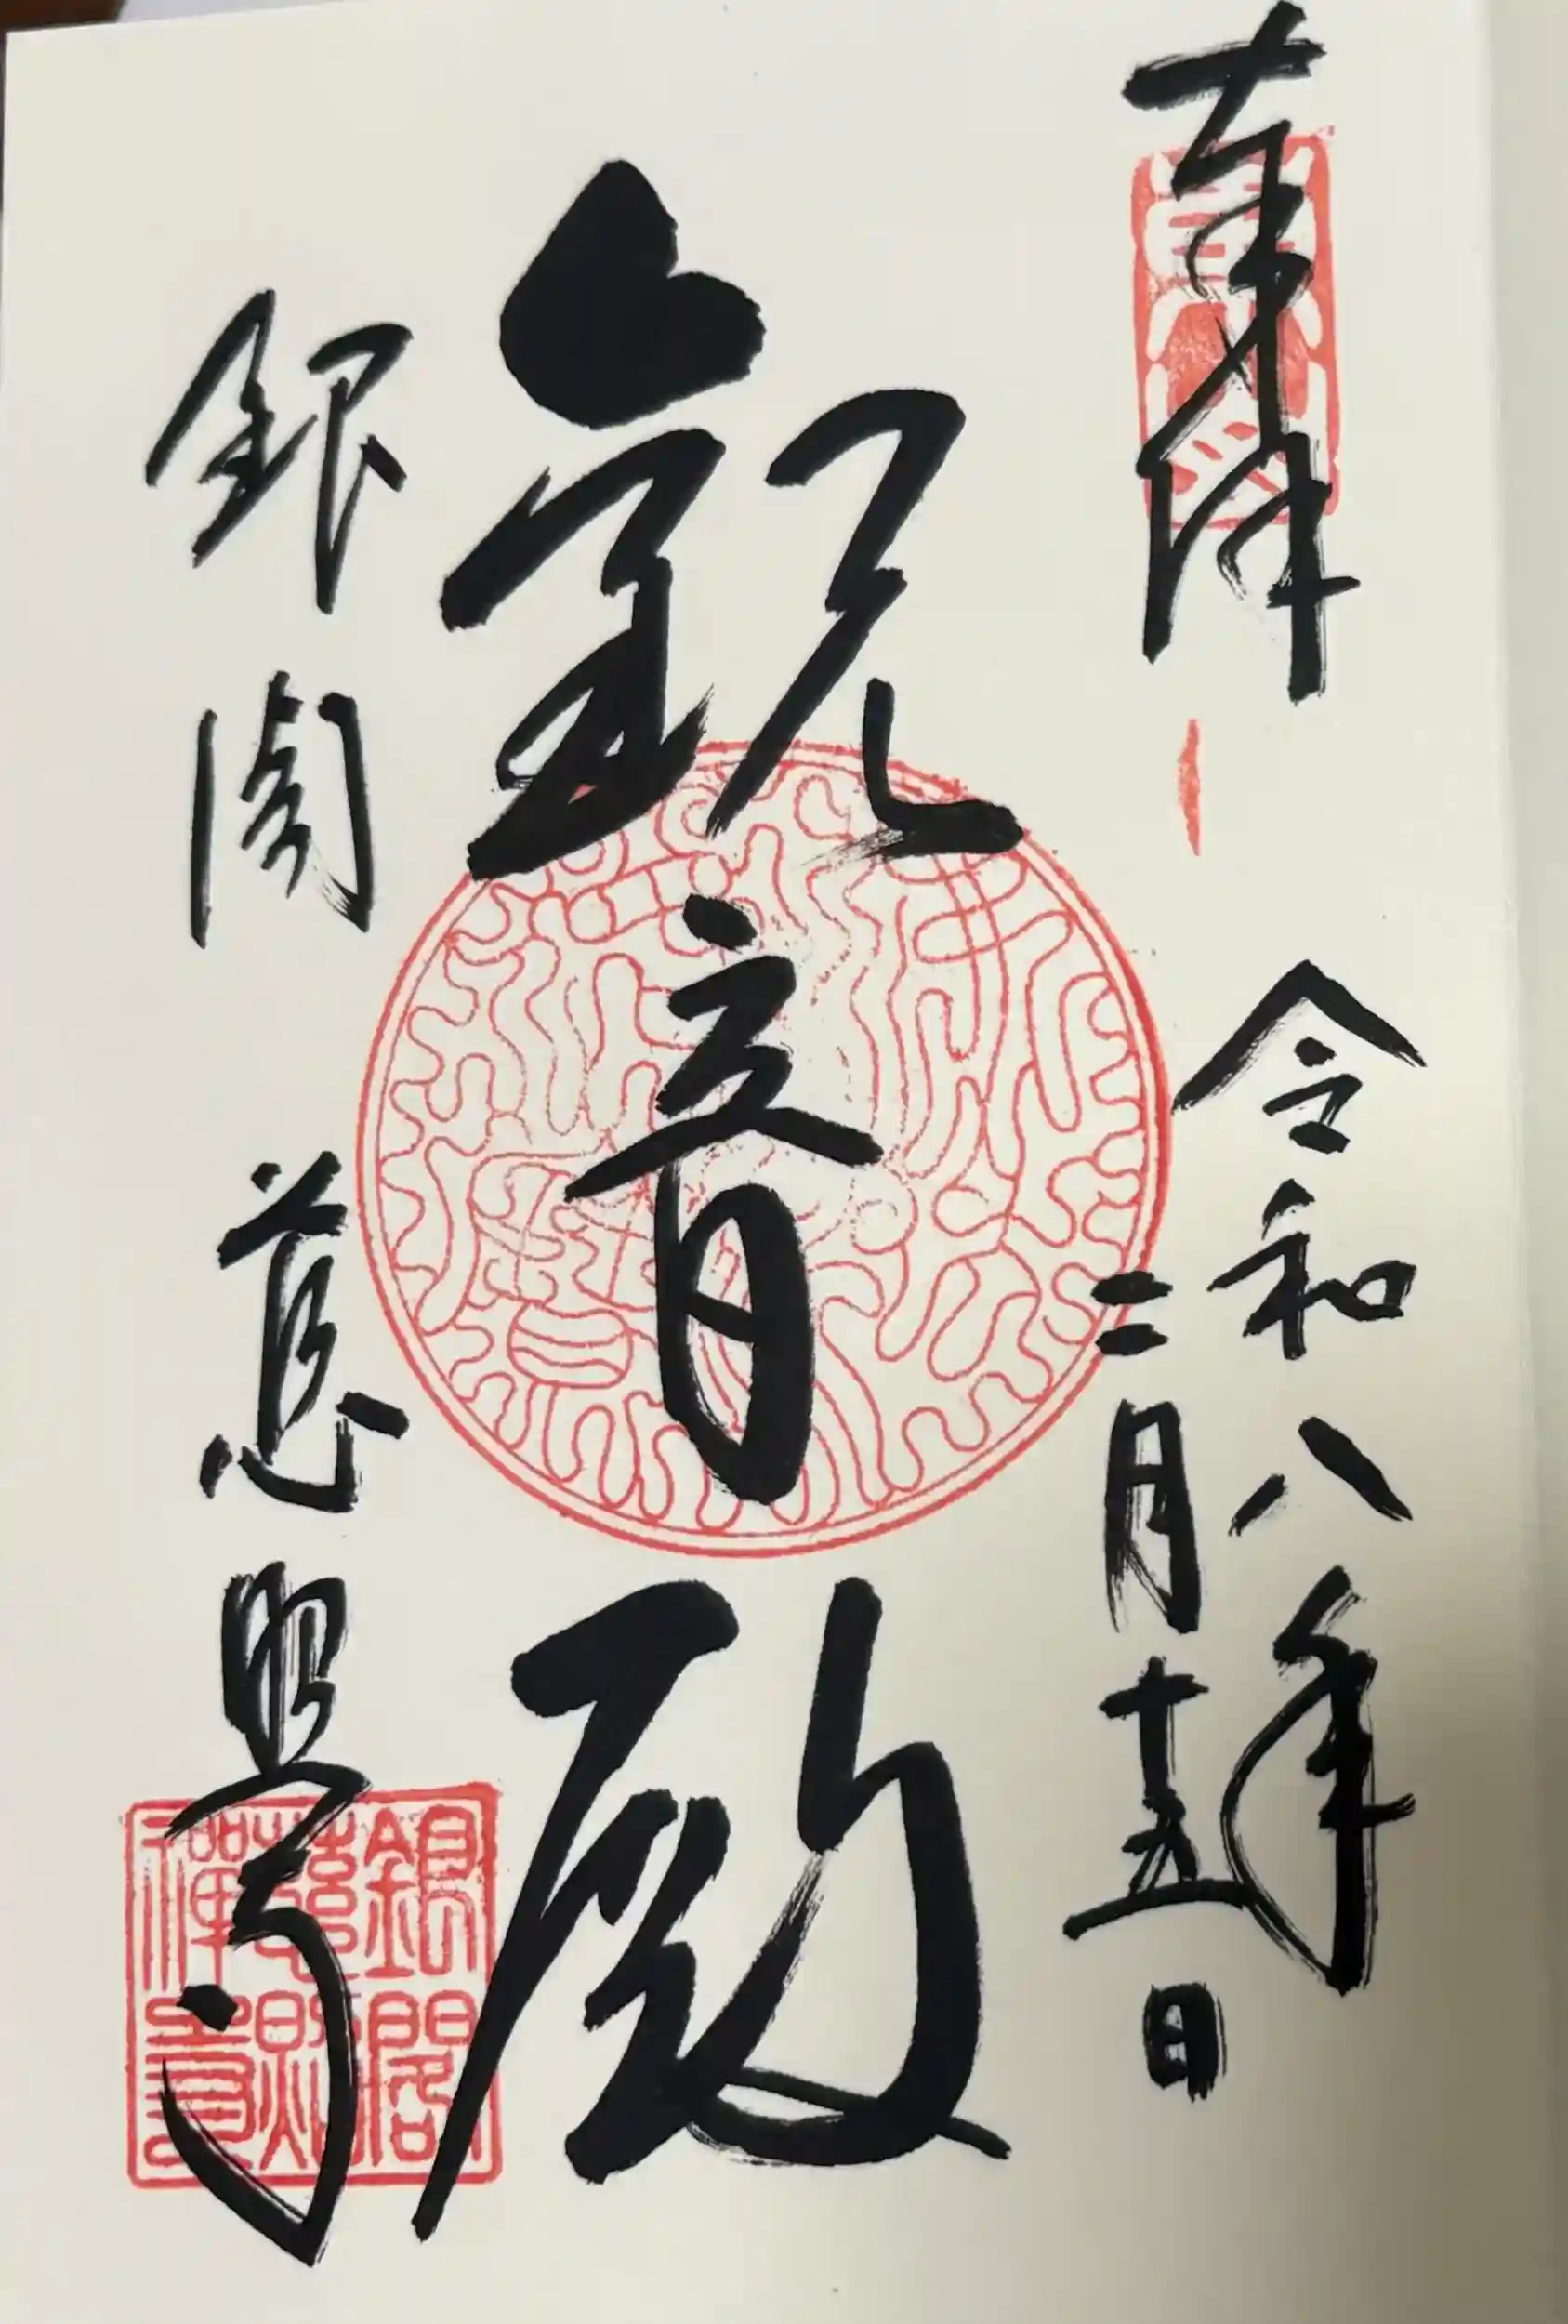 奉拝
令和八年
二月十五日
観音殿
銀閣 慈照寺
銀閣
慈照
禅寺